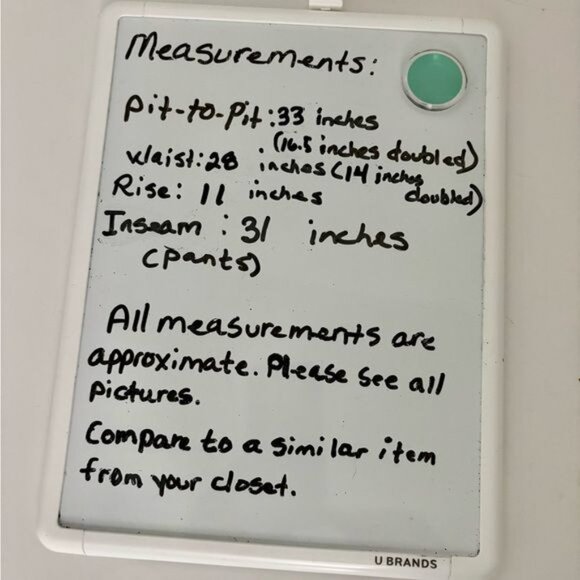 Measurements:
Pit-to-Pit: 33 inches
(16.5 inches doubled)
Waist: 28 inches (14 inches
doubled)
Rise: 11 inches
Inseam: 31 inches
(pants)
All measurements are
approximate. Please see all
pictures.
Compare to a similar item
from your closet.
U BRANDS